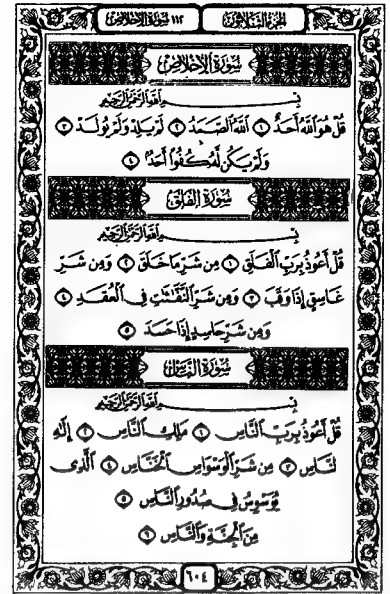 الجزء الثلاثون ١١٢ سورة الإخلاص
سُورَةُ الإِخْلَاصِ
بِسْمِ ٱللَّهِ ٱلرَّحْمَٰنِ ٱلرَّحِيمِ
قُلْ هُوَ ٱللَّهُ أَحَدٌ ١ ٱللَّهُ ٱلصَّمَدُ ٢ لَمْ يَلِدْ وَلَمْ يُولَدْ ٣
وَلَمْ يَكُن لَّهُۥ كُفُوًا أَحَدٌ ٤
سُورَةُ الفَلَقِ
بِسْمِ ٱللَّهِ ٱلرَّحْمَٰنِ ٱلرَّحِيمِ
قُلْ أَعُوذُ بِرَبِّ ٱلْفَلَقِ ١ مِن شَرِّ مَا خَلَقَ ٢ وَمِن شَرِّ
غَاسِقٍ إِذَا وَقَبَ ٣ وَمِن شَرِّ ٱلنَّفَّٰثَٰتِ فِى ٱلْعُقَدِ ٤
وَمِن شَرِّ حَاسِدٍ إِذَا حَسَدَ ٥
سُورَةُ النَّاسِ
بِسْمِ ٱللَّهِ ٱلرَّحْمَٰنِ ٱلرَّحِيمِ
قُلْ أَعُوذُ بِرَبِّ ٱلنَّاسِ ١ مَلِكِ ٱلنَّاسِ ٢ إِلَٰهِ
ٱلنَّاسِ ٣ مِن شَرِّ ٱلْوَسْوَاسِ ٱلْخَنَّاسِ ٤ ٱلَّذِى
يُوَسْوِسُ فِى صُدُورِ ٱلنَّاسِ ٥
مِنَ ٱلْجِنَّةِ وَٱلنَّاسِ ٦
٦٠٤